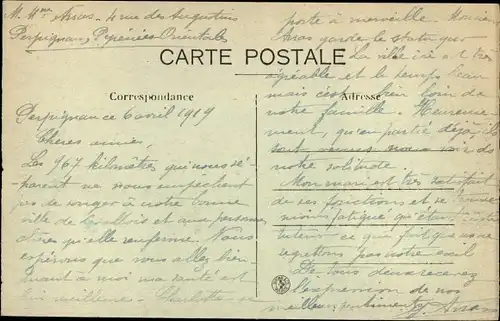 4 rue des Augustins
Perpignan, Pyrénées Orientales
CARTE POSTALE
Correspondance
Adresse
Perpignan ce 6 avril 1919
Chères amies,
Les 967 kilomètres qui nous sé-
parent ne nous empêchent
pas de songer à notre bonne
ville de Levallois et aux personnes
chères qu'elle renferme. Nous
espérons que vous allez bien
quant à moi ma santé est
meilleure. Charlotte se
porte à merveille.
garde le statu quo
La ville ici est très
agréable et le temps beau
mais c'est bien loin de
notre famille. Heureuse-
ment, qu'en partie déjà, ils
sont venus nous voir dans
notre solitude.
Mon mari est très satisfait
de ses fonctions et se trouve
moins fatigué qu'étant
ce qui fait que nous ne
regrettons pas notre exil
De tous deux recevez
l'expression de nos
meilleurs sentiments.